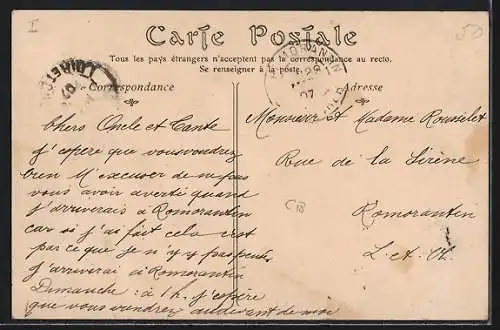 I
50
Carte Postale
Tous les pays étrangers n'acceptent pas la correspondance au recto.
Se renseigner à la poste.
Correspondance
Adresse
ROMORANTIN
07
Chers Oncle et Tante
J'espere que vous voudrez
bien M'excuser de ne pas
vous avoir averti quand
j'arriverais à Romorantin
car si j'ai fait cela c'est
par ce que je
J'arriverai à Romorantin
Dimanche à 1h. J'espère
que vous viendrez audevant de moi
Monsieur et Madame Rousselet
Rue de la Sirène
Romorantin
L. et Ch.
CB